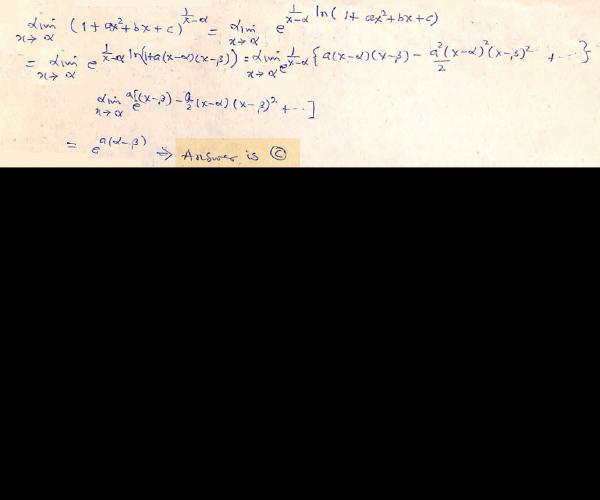 lim x→α (1+ax²+bx+c)^(1/(x-α)) = lim x→α e^(1/(x-α) ln(1+ax²+bx+c))
= lim x→α e^(1/(x-α) ln(1+a(x-α)(x-β))) = lim x→α e^(1/(x-α) {a(x-α)(x-β) - a²/2 (x-α)²(x-β)² + ...})
lim x→α e^(a[(x-β) - a/2 (x-α)(x-β)² + ...])
= e^(a(α-β)) ⇒ Answer is Ⓒ